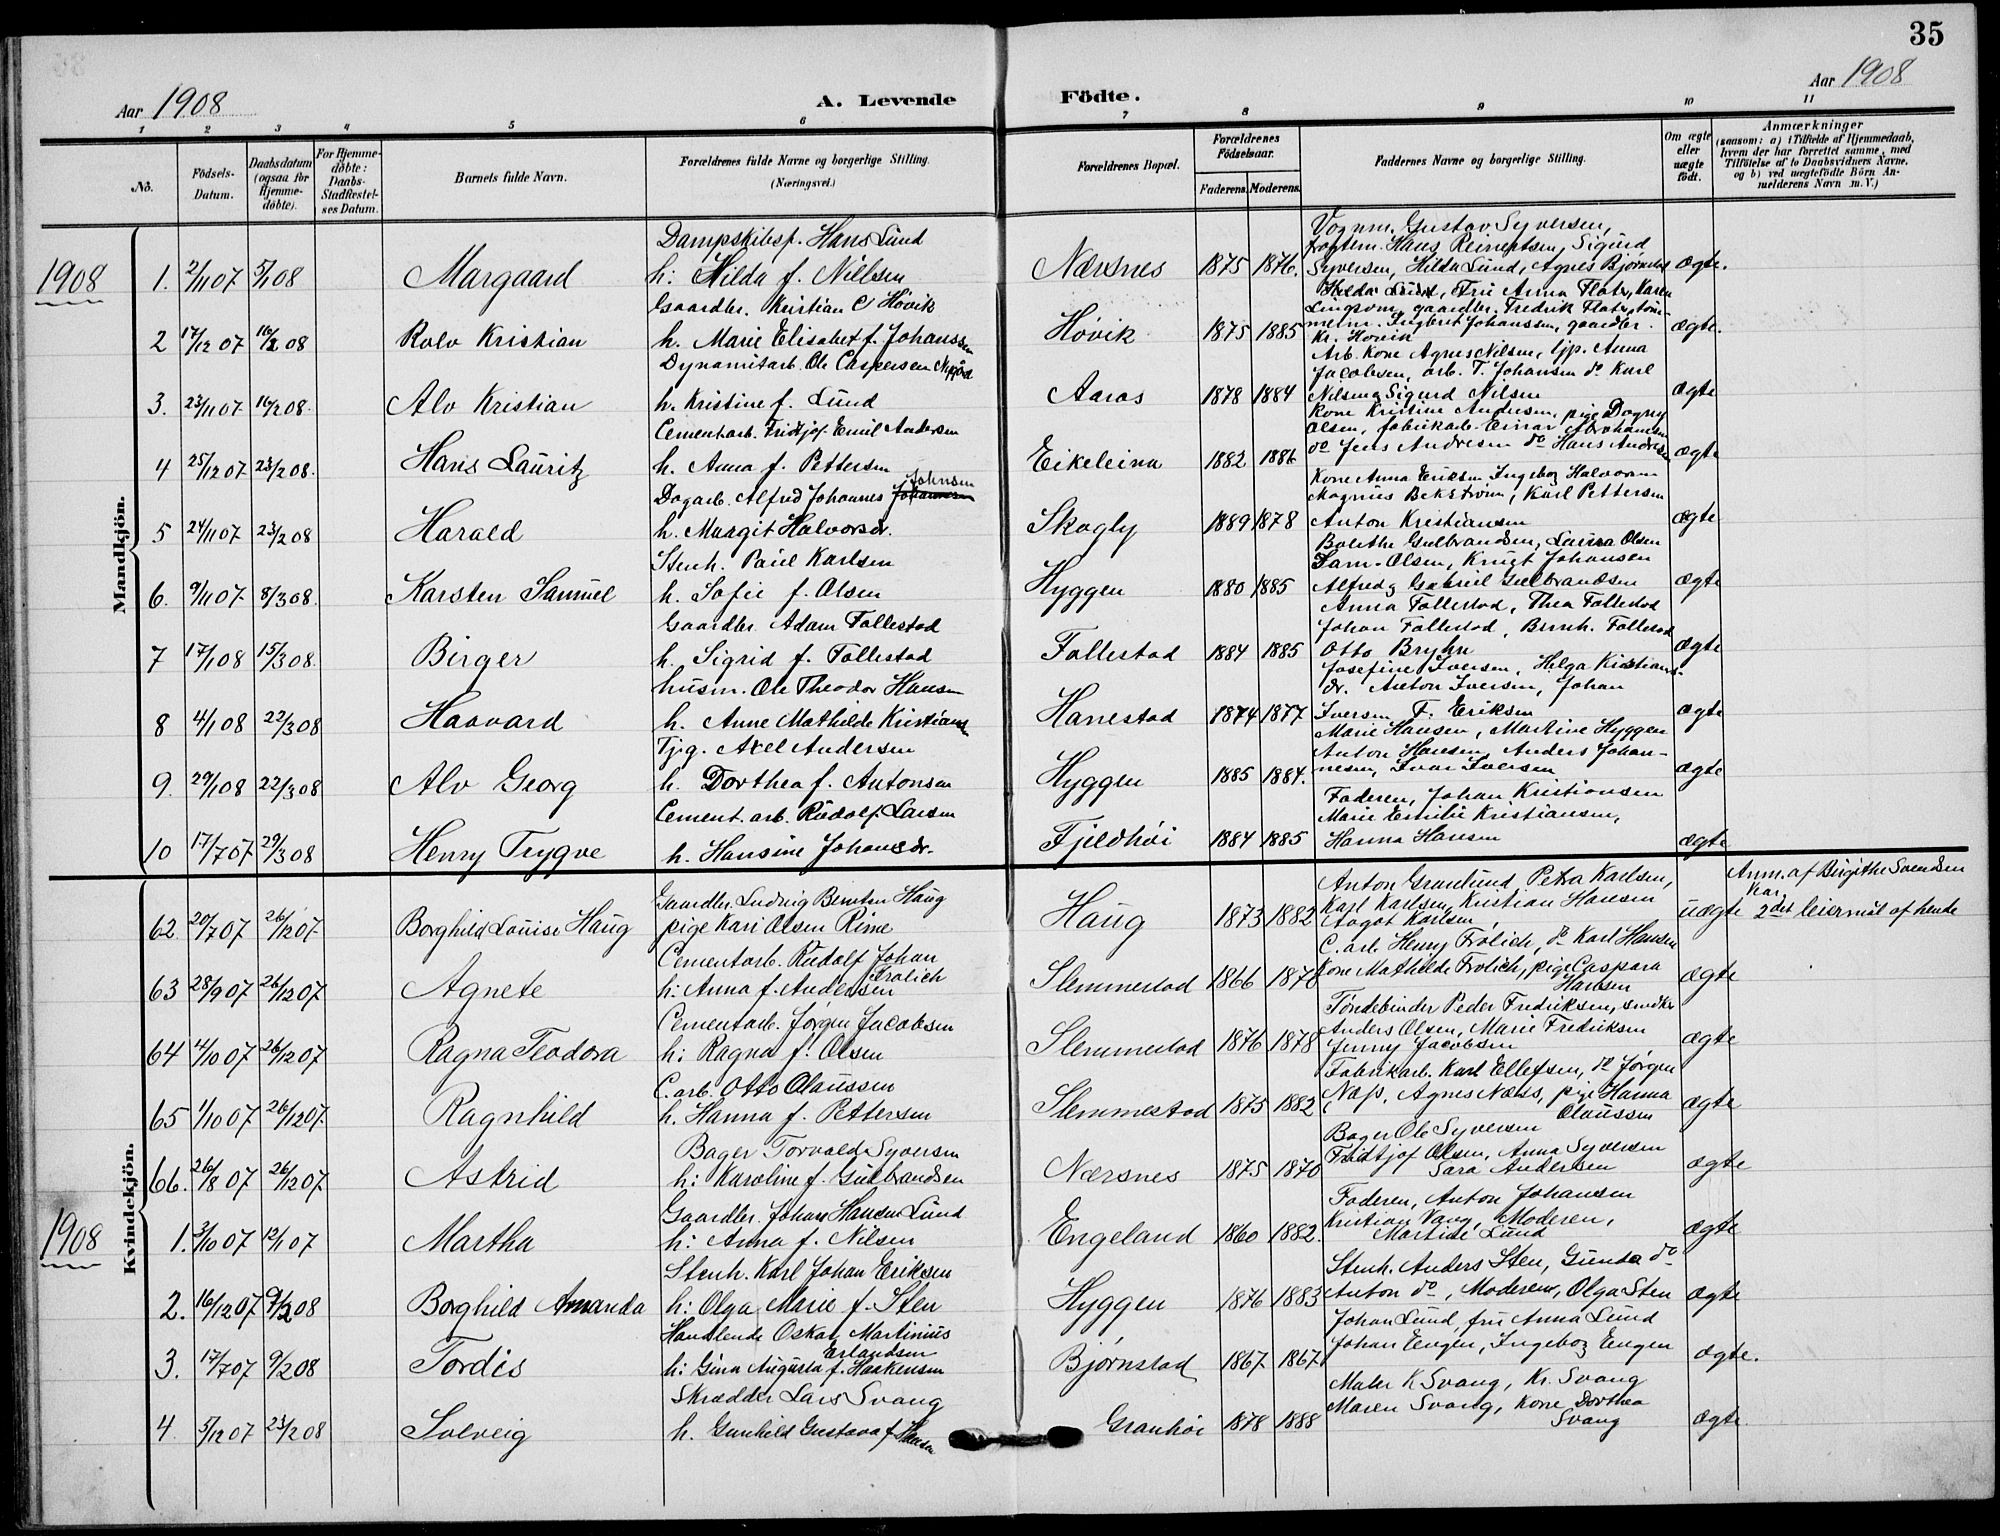 35
Aar 1908
A. Levende
Födte.
Aar 1908
1 2 3 4 5 6 7 8 9 10 11
No.
Födsels-Datum.
Daabsdatum (ogsaa for Hjemme-döbte).
For Hjemme-döbte: Daabs-Stadfæstel-ses Datum.
Barnets fulde Navn.
Forældrenes fulde Navne og borgerlige Stilling. (Næringsvei.)
Forældrenes Bopæl.
Forældrenes Födselsaar.
Faderens. Moderens.
Faddernes Navne og borgerlige Stilling.
Om ægte eller uægte födt.
Anmærkninger
(saasom: a) i Tilfælde af Hjemmedaab, hvem der har forrettet samme, med Tilföielse af to Daabsvidners Navne, og b) ved uægtefödte Börn An-melderens Navn m. V.)
Mandkjön.
1908
1. 2/11 07 5/1 08 Margaard
Dampskibesf. Hans Lund
h: Hilda f. Nielsen
Nærsnes 1875 1876.
Vognm. Gustav Syversen,
fragtem. Hans Reinertsen, Sigurd
Syversen, Hilda Lund, Agnes Bjørnstad
ægte.
2 17/12 07 16/2 08 Rolv Kristian
Gaardbr. Kristian C Høvik
h. Marie Elisabet f. Johanssen
Høvik 1875 1885
Hilda Lund, Fru Anna Flate, Karen
Lingsom, gaardbr. Fredrik Flate, tøm-
merm. Ingbret Johanssen, gaardbr.
Kr. Høvik
ægte.
3. 23/11 07 16/2 08. Alv Kristian
Dynamitarb. Ole Caspersen
h. Kristine f. Lund
Aaros 1878 1884
Arb. Kone Agnes Nilsen, tjp. Anna
Jacobsen, arb. T. Johansen do Karl
Nilsen, Sigurd Nilsen
ægte
4 25/12 07 23/2 08. Hans Lauritz
Cementarb. Fridtjof Emil Andersen
h. Anna f. Pettersen
Eikeleina 1882 1886
Kone Kristine Andersen, pige Dagny
Olsen, fabrikarb. Einar Abrahamsen
do Jens Andresen do Hans Andresen
ægte
5 24/11 07 23/2 08 Harald
Dagarb. Alfred Johannes Johnsen
h. Margit Halvorsdr.
Skogly 1889 1878
Kone Anna Eriksen Ingeborg Halvorsen
Magnus Bekstrøm, Karl Pettersen
Anton Kristiansen
ægte
6. 9/11 07. 8/3 08. Karsten Samuel
Stenh. Paul Karlsen
h. Sofie f. Olsen
Hyggen 1880 1885
Bolethe Gulbrandsen, Laura Olsen
Sam. Olsen, Knut Johansen
Alfred og Gabriel Gulbrandsen
ægte
7 17/1 08 15/3 08. Birger
Gaardbr. Adam Follestad
h. Sigrid f. Follestad
Follestad 1884 1885
Anna Follestad, Thea Follestad
Johan Follestad, Bernh. Follestad
Otto Bryhn
ægte
8 4/1 08 22/3 08 Haavard
husm. Ole Theodor Hansen
h. Anne Mathilde Kristians
Hanestad 1874 1877
Josefine Iversen, Helga Kristians-
dr. Anton Iversen, Johan
Iversen T. Eriksen
ægte
9. 29/1 08 22/3 08 Alv Georg
Tjg. Axel Andersen
h. Dorthea f. Antonsen
Hyggen 1885 1884.
Marie Hansen, Martine Hyggen
Anton Hansen, Anders Johan-
nesen, Ivar Iversen
ægte
10 17/7 07. 29/3 08 Henry Trygve
Cement. arb. Rudolf Larsen
h. Hansine Johansdr.
Fjeldhøi 1884 1885
Faderen, Johan Kristiansen
Marie Emilie Kristiansen,
Hanna Hansen
ægte
Kvindekjön.
62 20/7 07 26/12 07. Borghild Louise Haug
Gaardbr. Ludvig Berntsen Haug
pige Kari Olsen Rime
Haug 1873 1882
Anton Granlund, Petra Karlsen,
Karl Karlsen, Kristian Hansen
Aagot Karlsen
uægte
Anm. af Birgithe Svendsen
har
2det leiermål af hende
63 28/9 07 26/12 07 Agnete
Cementarb. Rudolf Johan Frølich
h: Anna f. Andersen
Slemmestad 1866 1870
C. arb. Henry Frølich, do Karl Hansen
Kone Mathilde Frølich, pige Caspara
Hansen
ægte
64 4/10 07 26/12 07 Ragna Teodora
Cementarb. Jørgen Jacobsen
h: Ragna f. Olsen
Slemmestad 1876 1878
Tøndebinder Peder Fredriksen, smed
Anders Olsen, Marie Fredriksen
Jenny Jacobsen
ægte
65 1/10 07 26/12 07. Ragnhild
C. arb. Otto Olaussen
h. Hanna f. Pettersen
Slemmestad 1875 1882
Fabrikarb. Karl Ellefsen, do Jørgen
Næss, Agnes Næss, pige Hanna
Olaussen
ægte
66. 26/8 07 26/12 07. Astrid
Bager Torvald Syversen
h: Karoline f. Gulbrandsen
Nærsnes 1875 1870
Bager Ole Syversen
Fridtjof Olsen, Anna Syversen
Sara Andersen
ægte
1908
1. 3/10 07 12/1 07 Martha
Gaardbr. Johan Hansen Lund
h: Anna f. Nilsen
Engeland 1860 1882.
Faderen, Anton Johansen
Kristian Vang, Moderen,
Martide Lund
ægte
2. 16/12 07 9/2 08 Borghild Amanda
Stenh. Karl Johan Eriksen
h: Olga Marie f. Sten
Hyggen 1876 1883
Stenh. Anders Sten, Gunda do
Anton do, Moderen, Olga Sten
ægte
3. 17/7 07 9/2 08 Tordis
Handlende Oskar Martinius
Erlandsen
h: Gina Augusta f. Haakensen
Bjørnstad 1867. 1867.
Johan Lund, fru Anna Lund
Johan Engen, Ingeborg Engen
ægte.
4. 5/12 07 23/2 08 Solveig
Skrædder Lars Svang
h. Gunhild Gustava f. Hansen
Granhøi 1878 1888
Maler K Svang, Kr. Svang
Maren Svang, Kone Dorthea
Svang
ægte